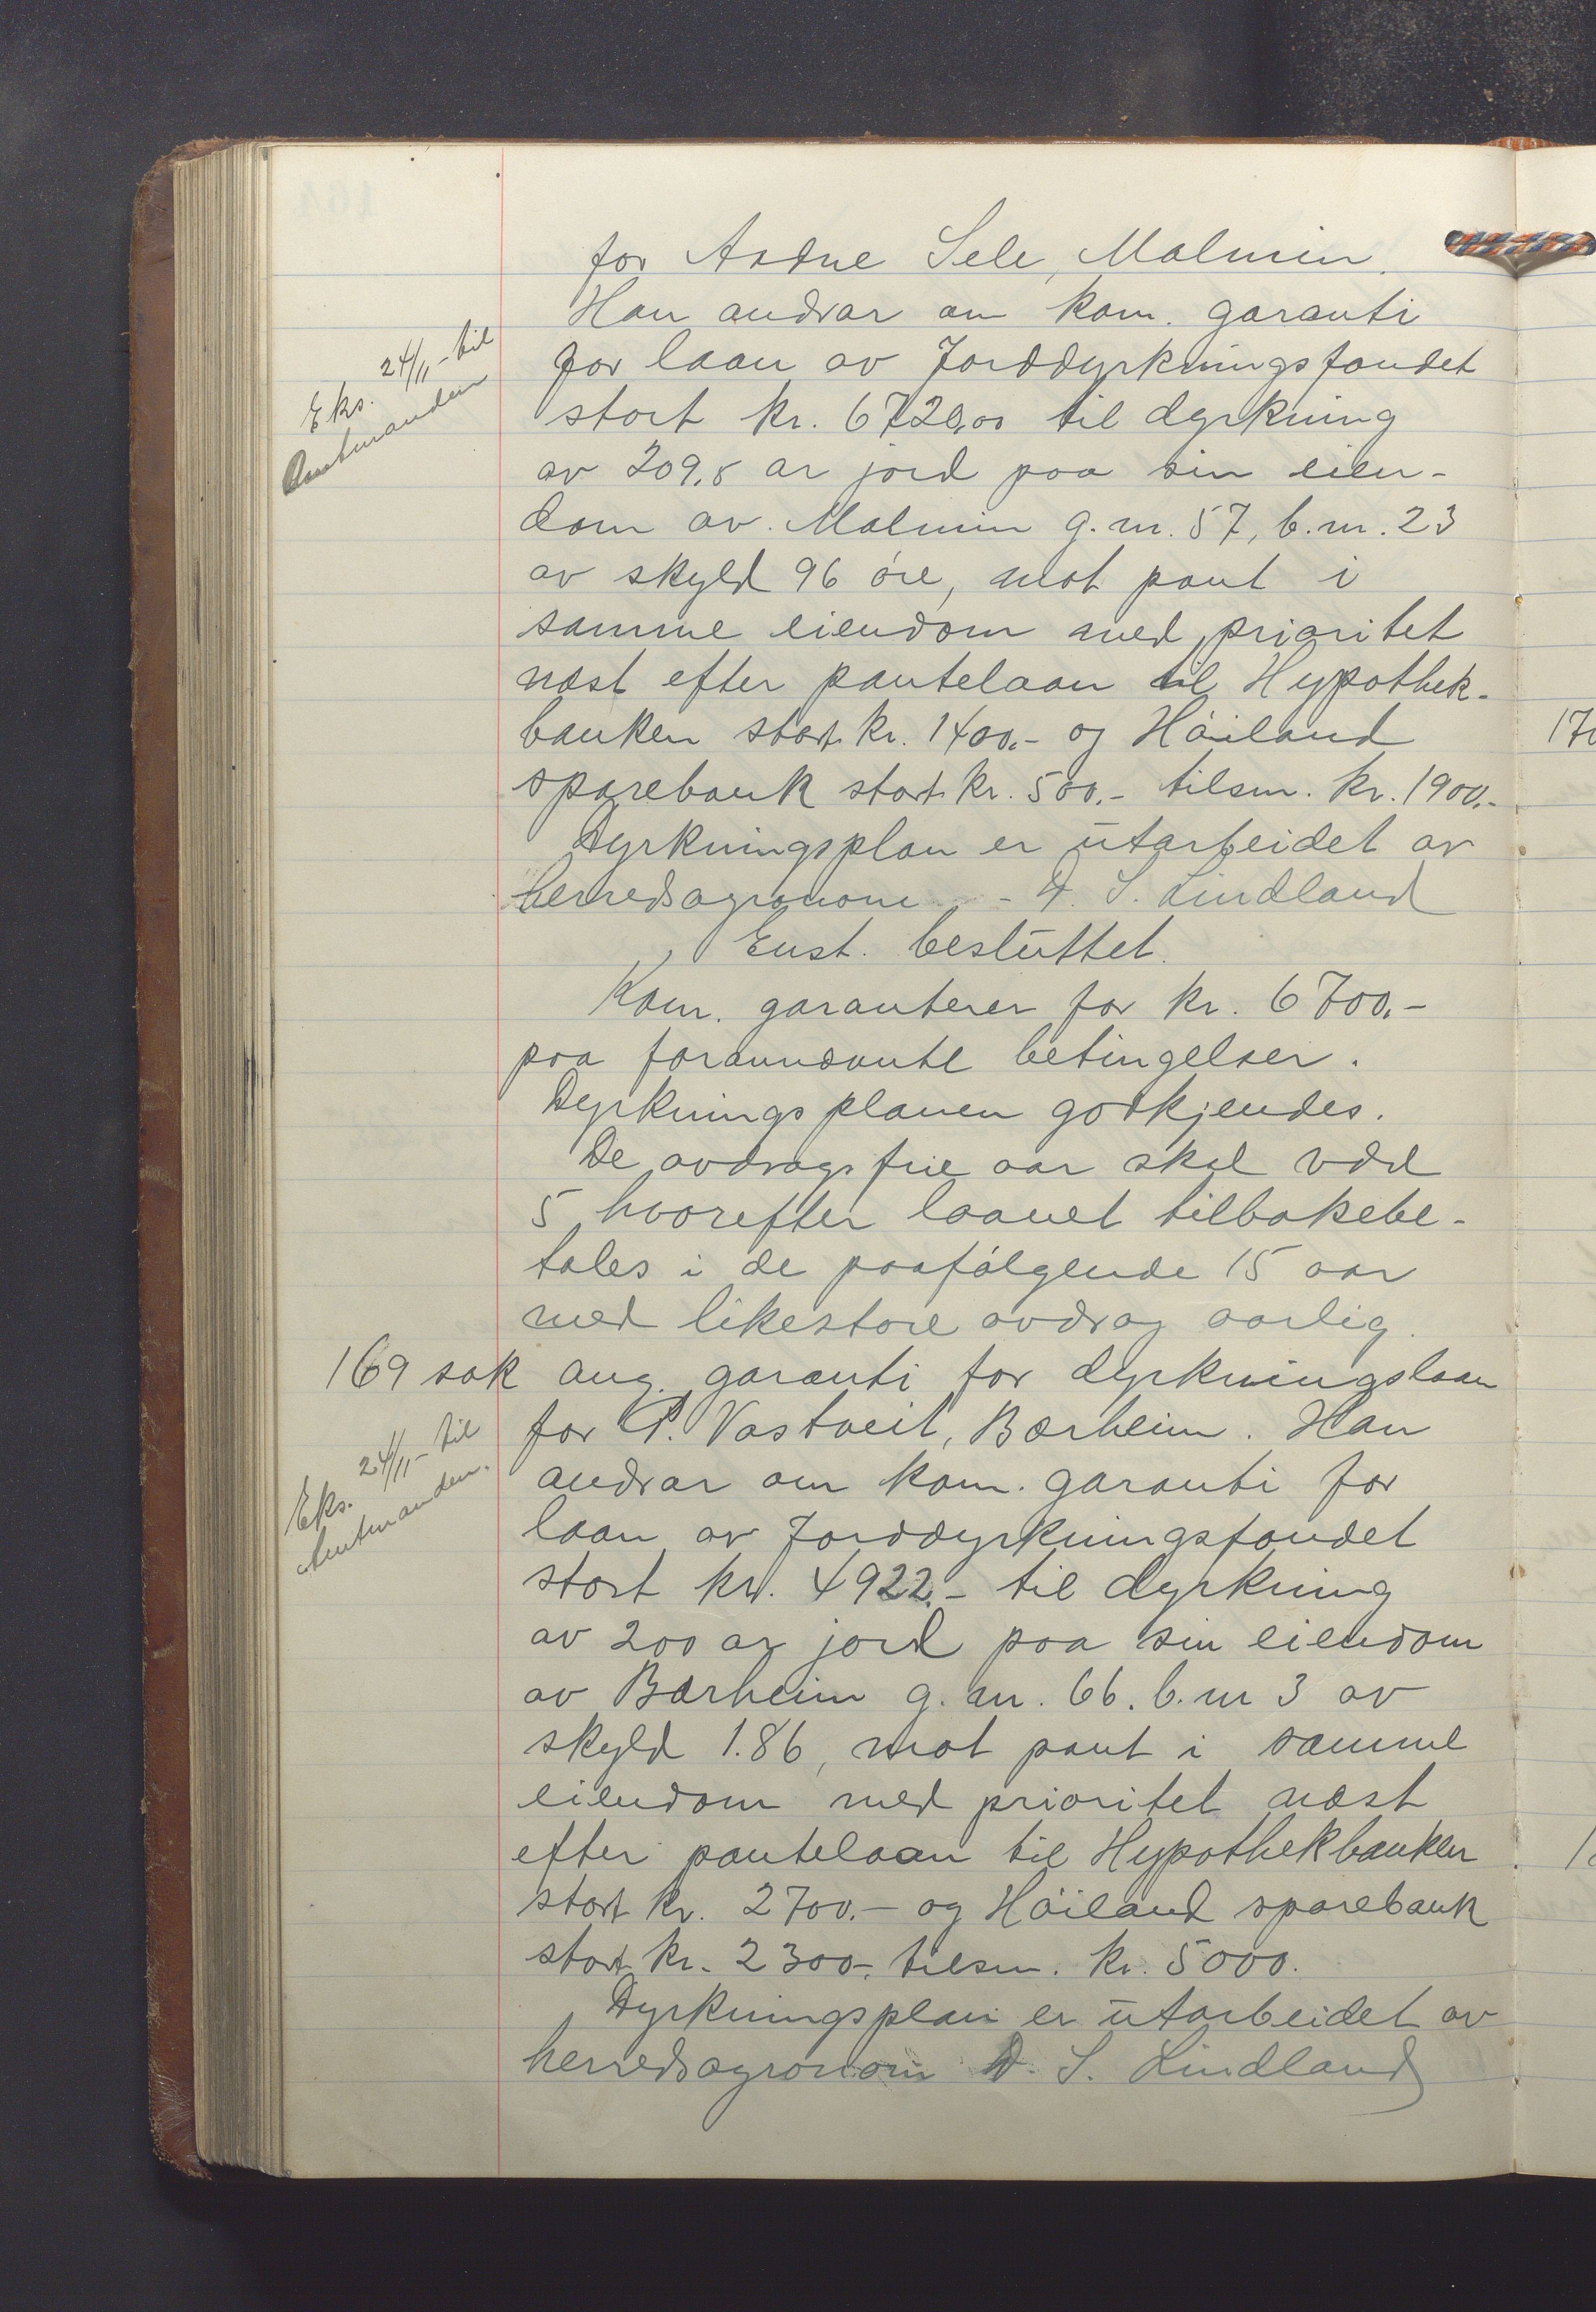 for Aadne Sele, Malmin.
Han andrar om kom. garanti
for laan av Jorddyrkningsfondet
Eks. 24/11 - til
Amtmanden
stort kr. 6720,00 til dyrkning
av 209,8 ar jord paa sin eien-
dom av Malmin g.nr. 57, b.nr. 23
av skyld 96 øre, mot pant i
samme eiendom med prioritet
næst efter pantelaan til Hypothek-
banken stort kr. 1400.- og Höiland
sparebank stort kr. 500.- tilsm. kr. 1900.-
Dyrkningsplan er utarbeidet av
herredsagronom - D. S. Lindland
Enst. besluttet.
Kom. garanterer for kr. 6700.-
paa forannævnte betingelser.
Dyrkningsplanen godkjendes.
De avdragsfrie aar skal være
5 hvorefter laanet tilbakebe-
tales i de paafølgende 15 aar
med likestore avdrag aarlig.
169 sak ang. garanti for dyrkningslaan
for P. Vastveit, Bærheim. Han
Eks. 24/11 - til
Amtmanden.
andrar om kom. garanti for
laan av Jorddyrkningsfondet
stort kr. 4922.- til dyrkning
av 200 ar jord paa sin eiendom
av Bærheim g.nr. 66. b.nr 3 av
skyld 1.86, mot pant i samme
eiendom med prioritet næst
efter pantelaan til Hypothekbanken
stort kr. 2700.- og Höiland sparebank
stort kr. 2300.- tilsm. kr. 5000.
Dyrkningsplan er utarbeidet av
herredsagronom D. S. Lindland